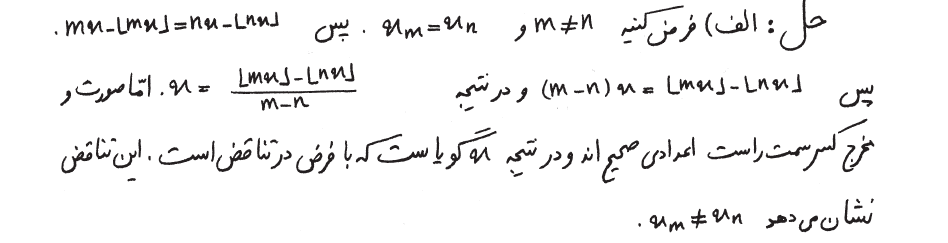 حل: الف) فرض کنید m ≠ n و x_m = x_n . پس mx - ⌊mx⌋ = nx - ⌊nx⌋ .
پس (m-n)x = ⌊mx⌋ - ⌊nx⌋ و در نتیجه x = (⌊mx⌋ - ⌊nx⌋)/(m-n) . امّا صورت و
مخرج کسر سمت راست اعدادی صحیح اند و در نتیجه x گویا ست که با فرض در تناقض است . این تناقض
نشان می دهد x_m ≠ x_n .